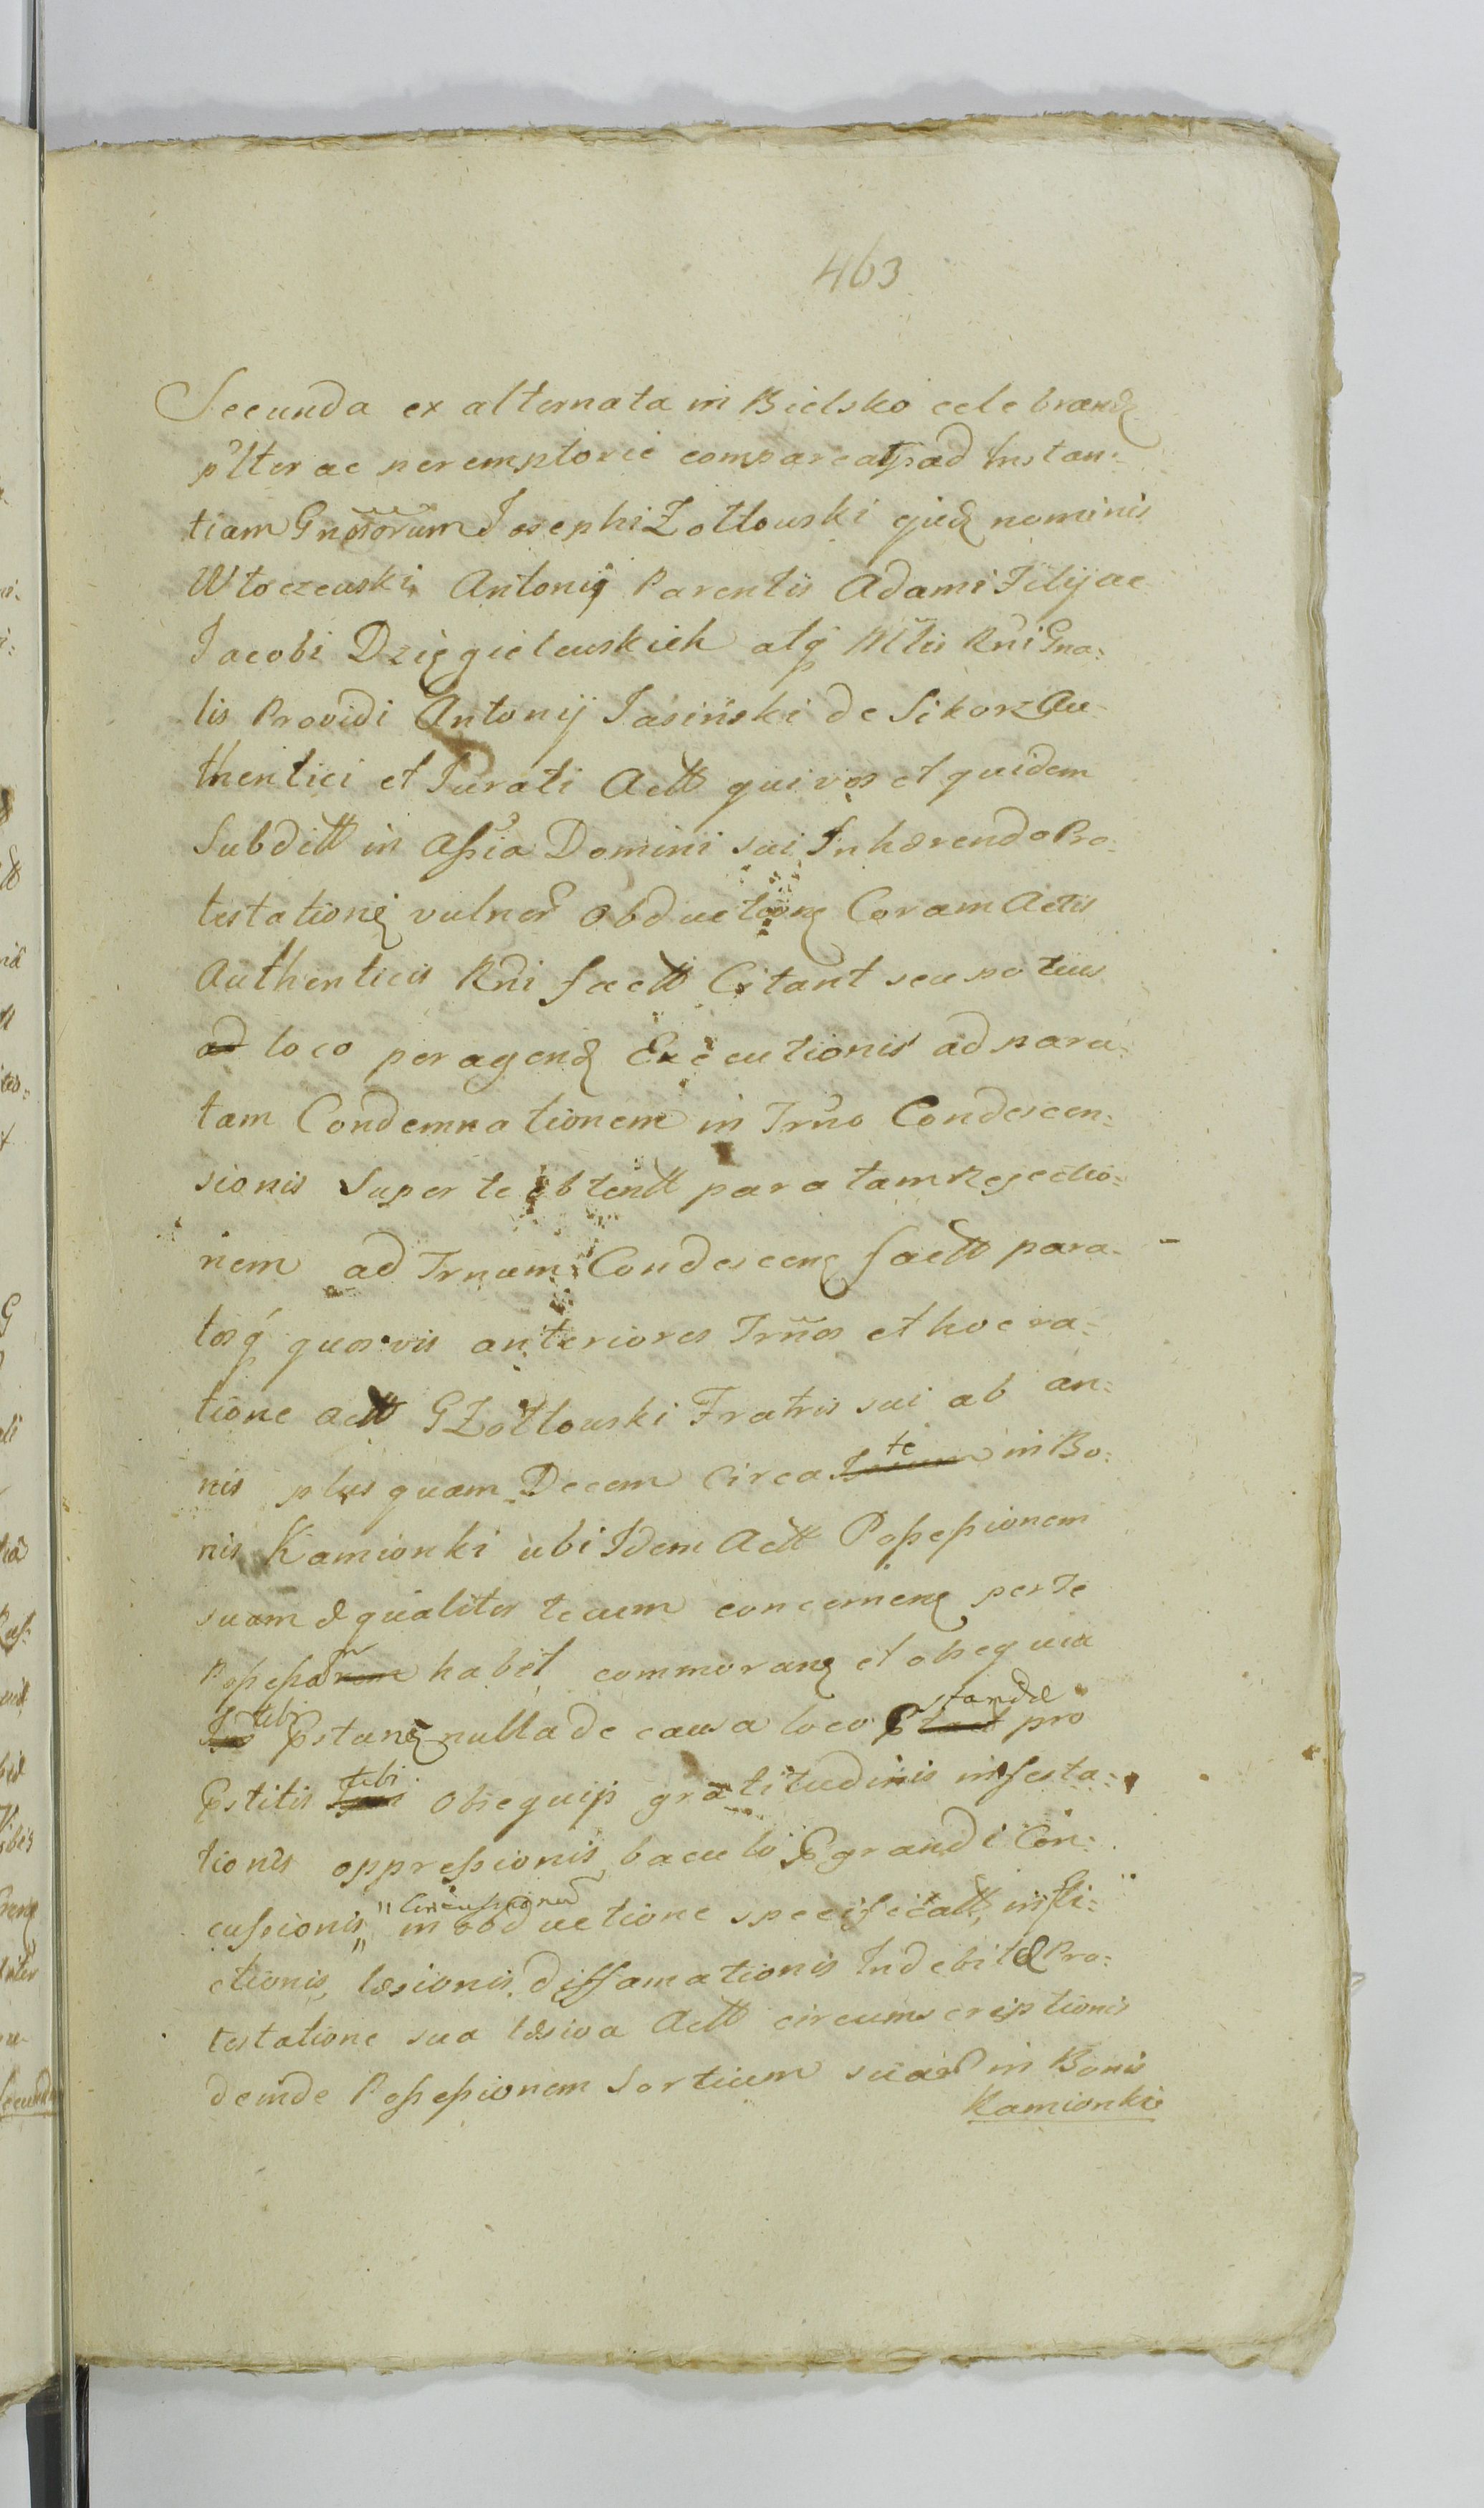 463
Secunda ex alternata in Bielsko celebrand
plter ac peremptorie compareatis ad Instan:
tiam Gnosorum Josephi Zołtowski ejusd nominis
Włoczewski Antonij Parentis Adami Filij ac
Jacobi Dzięgielewskich atq Mtis Rni Gna:
lis Providi Antonij Jasiński de Sikorz Au
thentici et Jurati Actt qui vos et quidem
Subditt in Assia Domini sui Inhærendo Pro:
testatione vulner Obductione Coram Actis
Authenticis Rni factt Citant seu potius
ad loco peragend Executionis ad para:
tam Condemnationem in Trno Condescen:
sionis Super te obtentt paratam Rejectio:
nem ad Trnum Condescens factt para:
tosq quosvis anteriores Trnos et hoc ra:
tione Actt G Zołtowski Fratris sui ab an:
nis plus quam Decem Circa te in Bo:
nis Kamionki ubi Idem Actt Possessionem
suam æqualiter tecum concernen per Te
Possessam habet commoran et obsequia
tibi Pstan nulla de causa loco Pstandæ pro
Pstitis tibi Obsequijs gratitudinis infesta:
tionis oppressionis baculo Pgrandi Con:
cussionis, in obductione specificatt, infli:
ctionis, læsionis, diffamationis Indebitæ Pro:
testatione sua læsiva Actt circumscriptionis
deinde Possessionem Sortium suar in Bonis
Kamionki